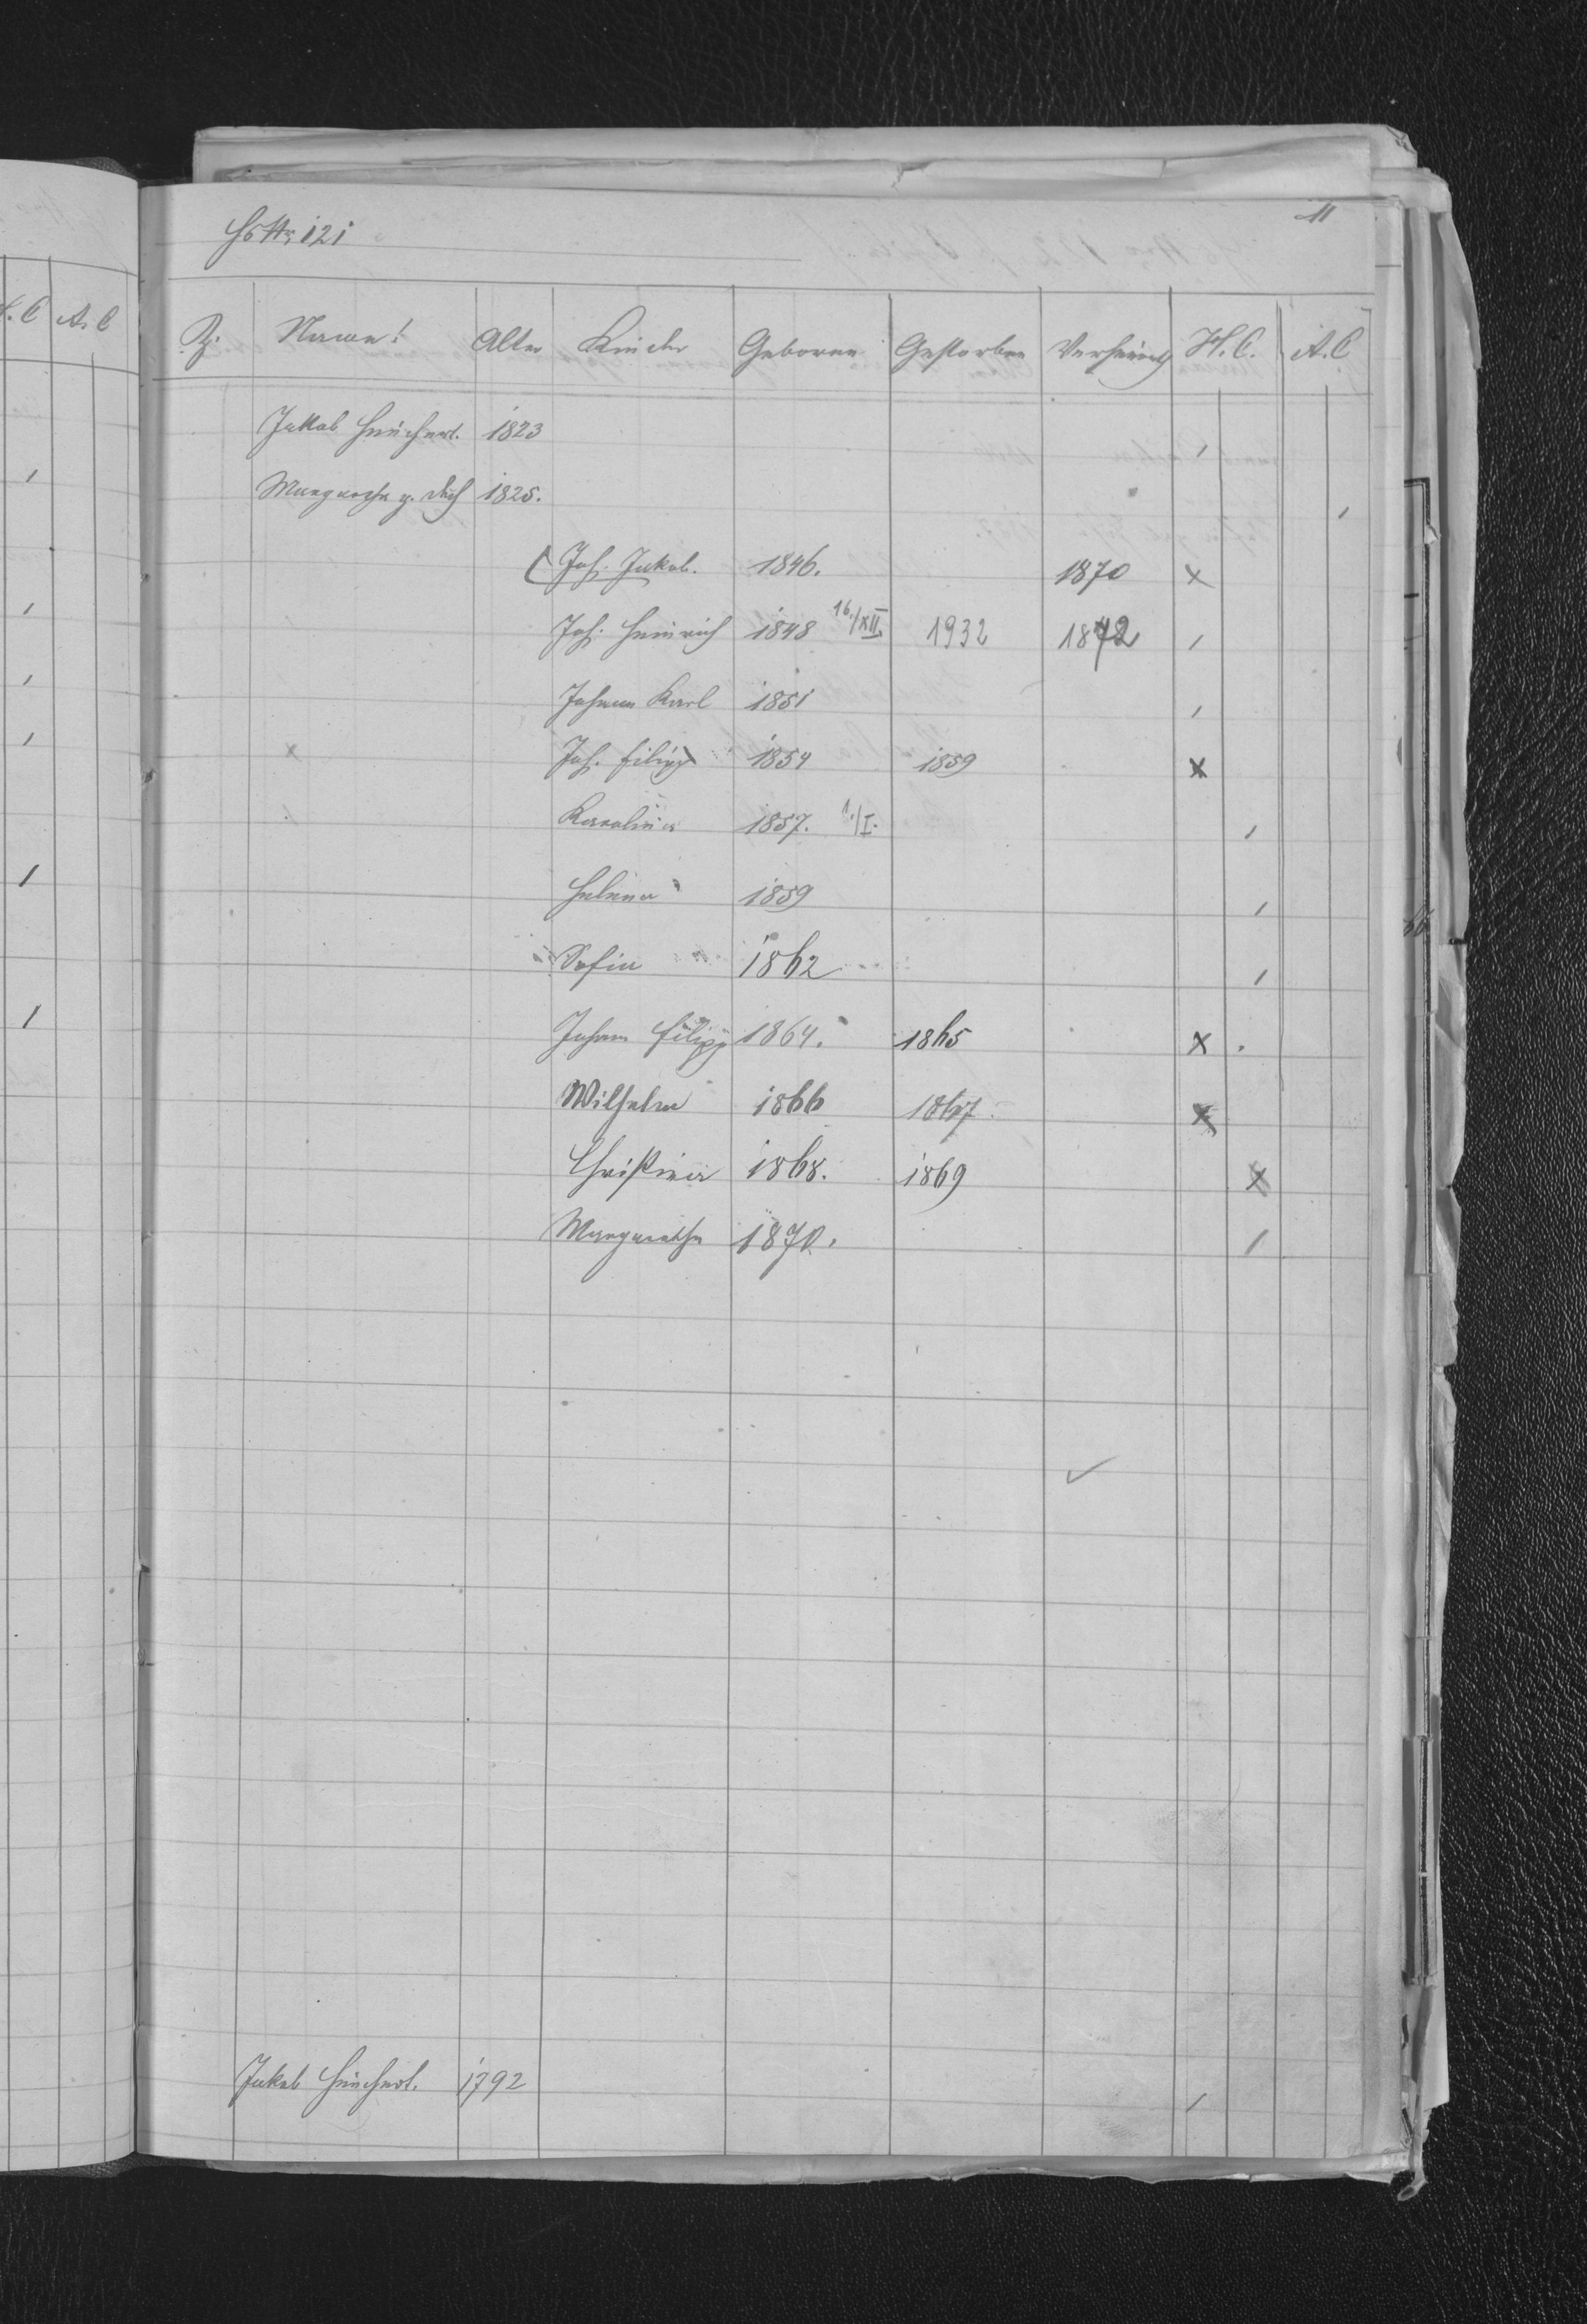 H. C. A. C
11
Hs Nr. 121
Z. Name! Alter Kinder Geboren Gestorben Verheirat H. C. A. C
Jakob 1823
Margaretha g. 1825.
Joh. Jakob. 1846. 1870 x
Joh. Heinrich 1848 16./XII. 1932 1872
Johann Karl 1851
Joh. Filipp 1854 1859 x
Karolina 1857. 1./I.
Helena 1859
Sofia 1862
Johann Filipp 1864. 1865 x
Wilhelm 1866 1867 x
Christina 1868. 1869 x
Margaretha 1870.
Jakob 1792